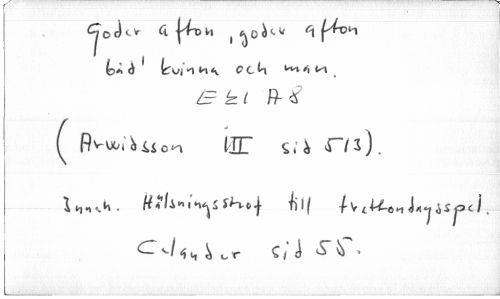 Goder afton, goder afton
båd' kvinna och man.
E A 8
(Arwidsson III sid 513).
Inneh. Hälsningsstrof till trettondagsspel.
Celander sid 55.